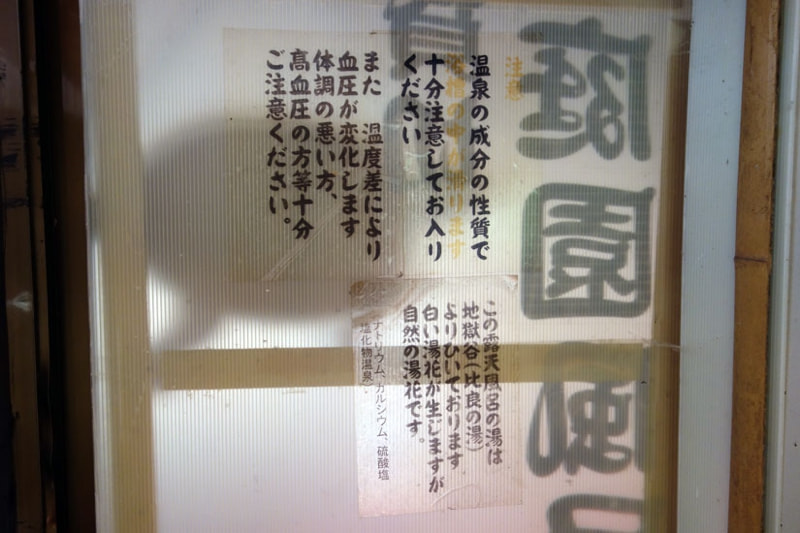 注意
温泉の成分の性質で
浴槽の中が滑ります
十分注意してお入り
ください
また 温度差により
血圧が変化します
体調の悪い方、
高血圧の方等十分
ご注意ください。
この露天風呂の湯は
地獄谷(比良の湯)
よりひいております
白い湯花が生じますが
自然の湯花です。
ナトリウム、カルシウム、硫酸塩
塩化物温泉)
庭園風呂